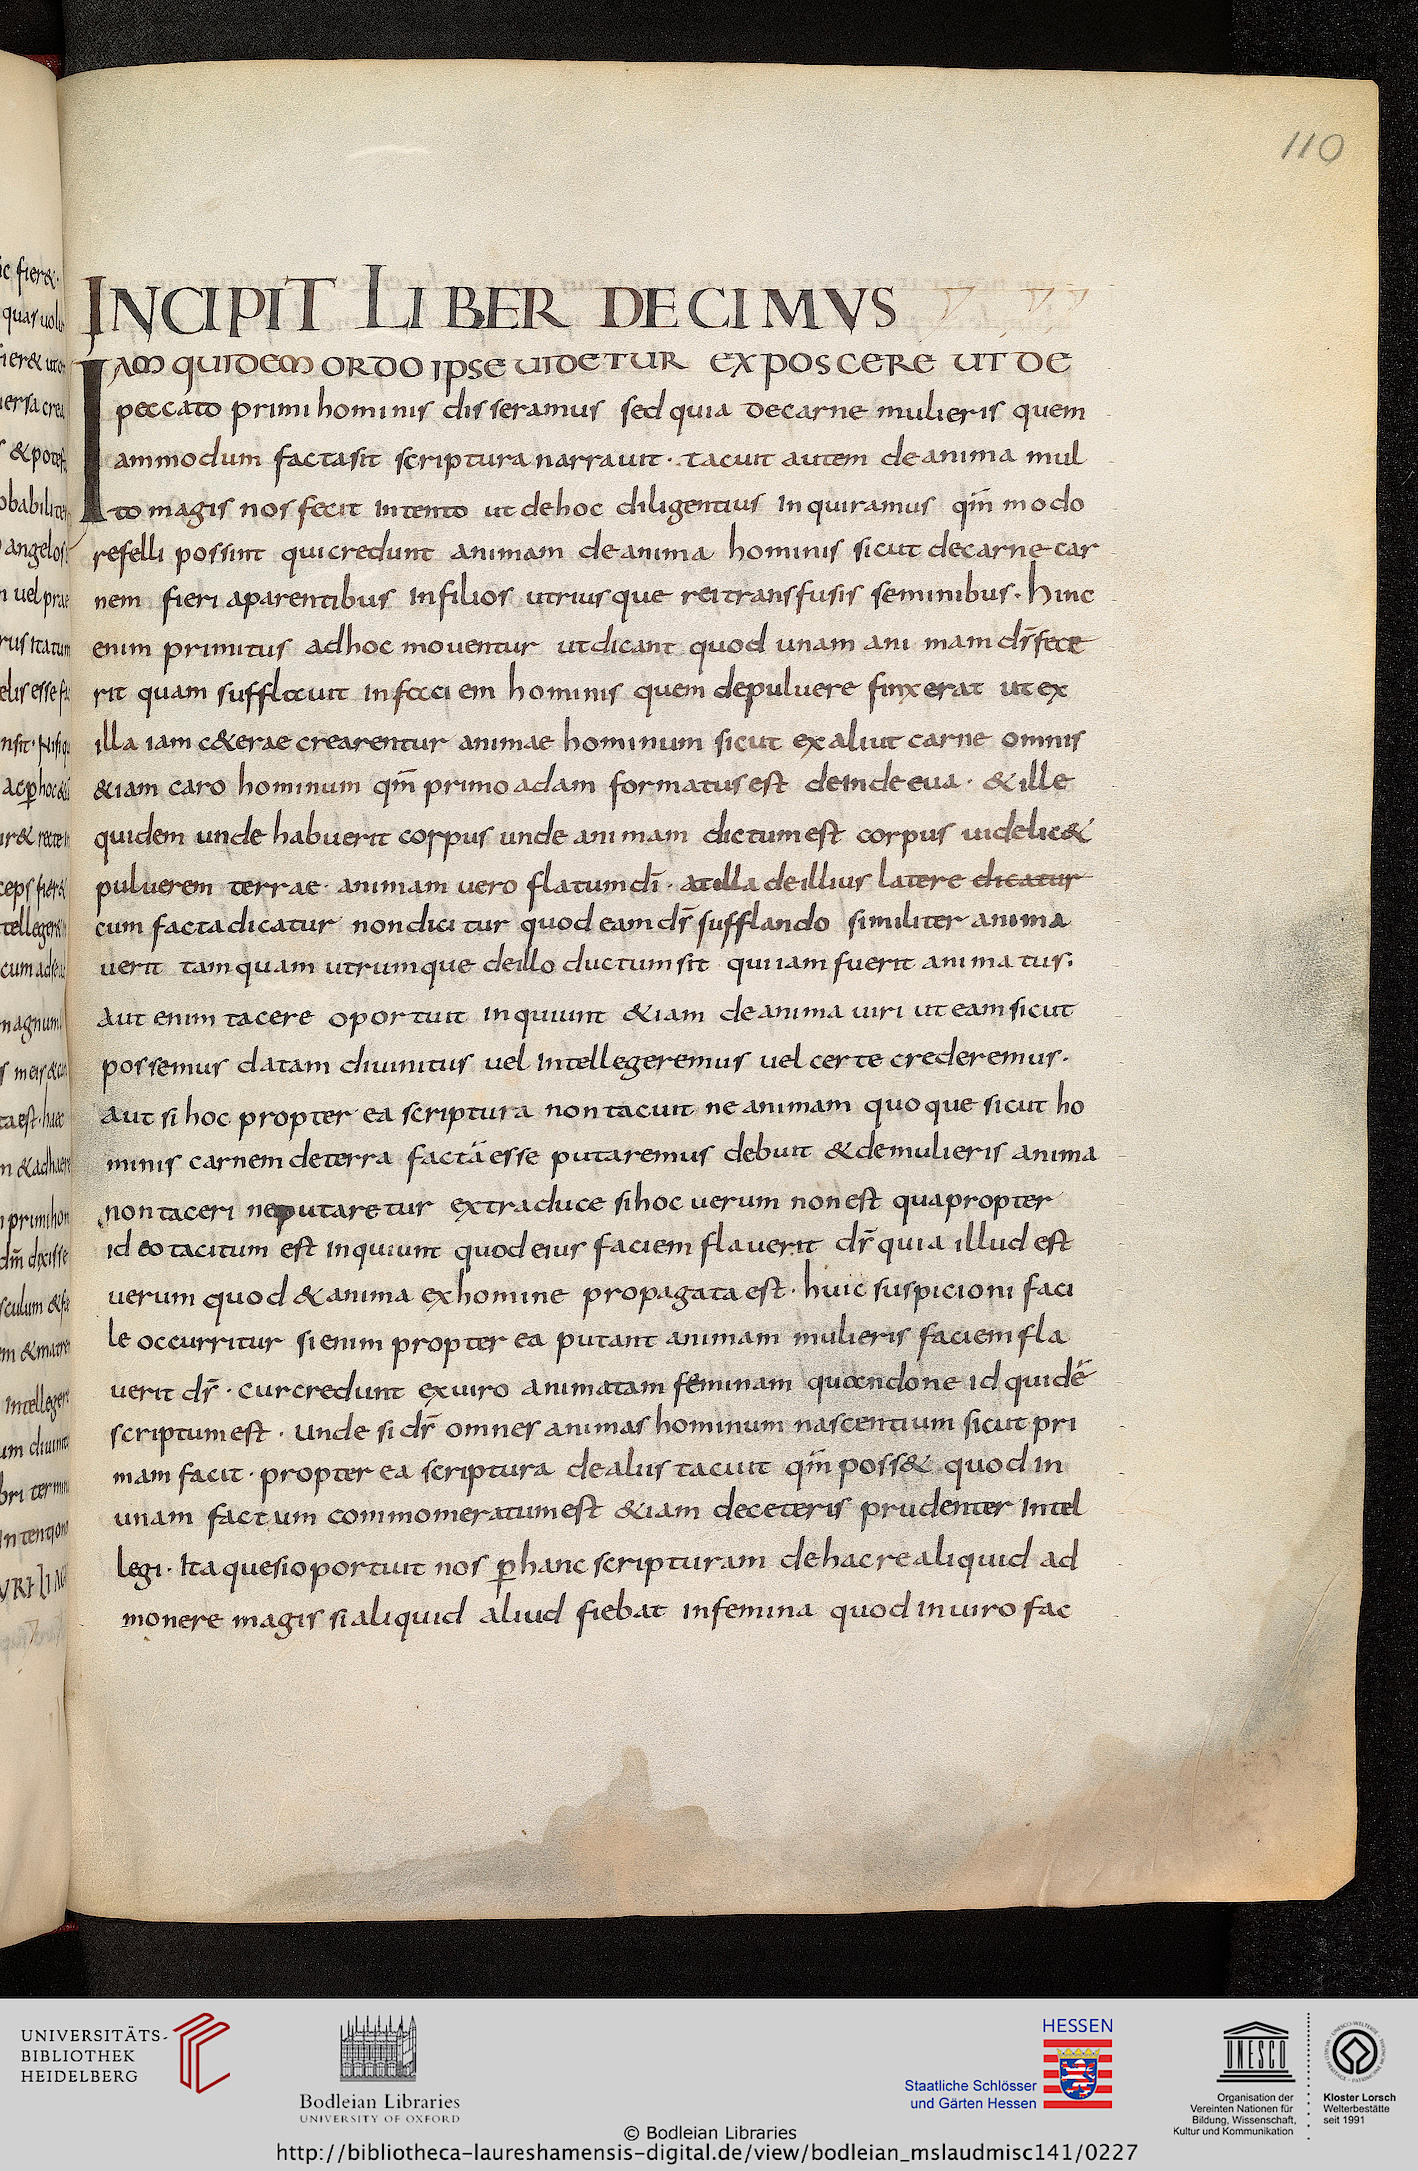 110
INCIPIT LIBER DECIMVS
IAM QUIDEM ORDO IPSE UIDETUR EXPOSCERE UT DE
peccato primi hominis disseramus sed quia decarne mulieris quem
ammodum factasit scriptura narrauit· tacuit autem deanima mul
to magis nos fecit intento ut dehoc diligentius inquiramus qm̄ modo
refelli possint quicredunt animam deanima hominis sicut decarne car
nem fieri aparentibus infilios utriusque rei transfusis seminibus· hinc
enim primitus adhoc mouentur utdicant quod unam animam dr̄ fece
rit quam sufflauit infaciem hominis quem depuluere finxerat ut ex
illa iam c&erae crearentur animae hominum sicut exaliut carne omnis
&iam caro hominum qm̄ primo adam formatus est deinde eua· &ille
quidem unde habuerit corpus unde animam dictum est corpus uidelic&
puluerem terrae· animam uero flatum dī· atilla deillius latere dicatur
cum facta dicatur non dicitur quod eam dr̄ sufflando similiter anima
uerit tamquam utrumque deillo ductum sit quiiam fuerit animatus·
aut enim tacere oportuit inquiunt &iam deanima uiri ut eam sicut
possemus datam diuinitus uel intellegeremus uel certe crederemus·
aut si hoc propterea scriptura non tacuit ne animam quoque sicut ho
minis carnem deterra factā esse putaremus debuit &demulieris anima
non taceri ne putaretur extraduce sihoc uerum non est quapropter
ideo tacitum est inquiunt quod eius faciem flauerit dr̄ quia illud est
uerum quod &anima exhomine propagata est· huic suspicioni faci
le occurritur sienim propterea putant animam mulieris faciem fla
uerit dr̄· cur credunt exuiro animatam feminam quandone id quidē
scriptum est· unde si dr̄ omnes animas hominum nascentium sicut pri
mam facit· propterea scriptura dealiis tacuit qm̄ poss& quod in
unam factum commomeratum est &iam deceteris prudenter intel
legi· itaque si oportuit nos ꝑ hanc scripturam dehacre aliquid ad
monere magis si aliquid aliud fiebat infemina quod inuiro fac
UNIVERSITÄTS-
BIBLIOTHEK
HEIDELBERG
Bodleian Libraries
UNIVERSITY OF OXFORD
© Bodleian Libraries
HESSEN
Staatliche Schlösser
und Gärten Hessen
UNESCO
Organisation der
Vereinten Nationen für
Bildung, Wissenschaft,
Kultur und Kommunikation
Kloster Lorsch
Welterbestätte
seit 1991
http://bibliotheca-laureshamensis-digital.de/view/bodleian_mslaudmisc141/0227